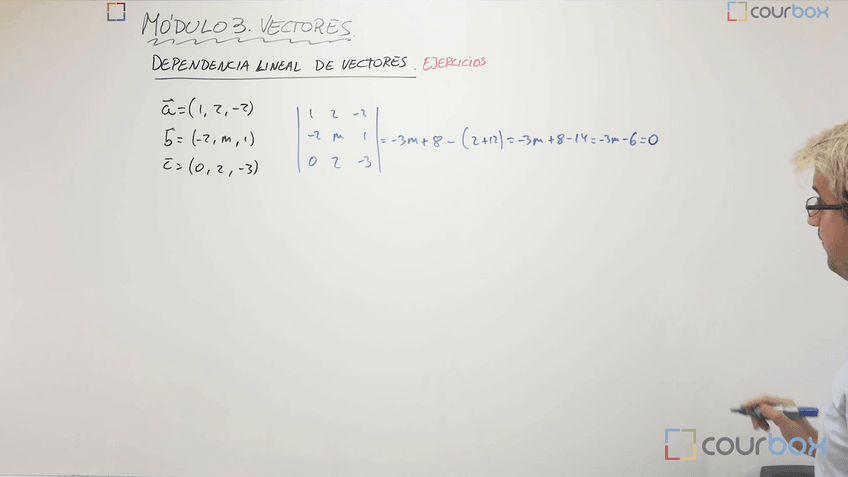 MÓDULO 3. VECTORES
courbox
DEPENDENCIA LINEAL DE VECTORES. EJERCICIOS
a⃗=(1, 2, -2)
b⃗=(-2, m, 1)
c⃗=(0, 2, -3)
| 1 2 -2 |
| -2 m 1 | = -3m+8-(2+12)=-3m+8-14=-3m-6=0
| 0 2 -3 |
courbox